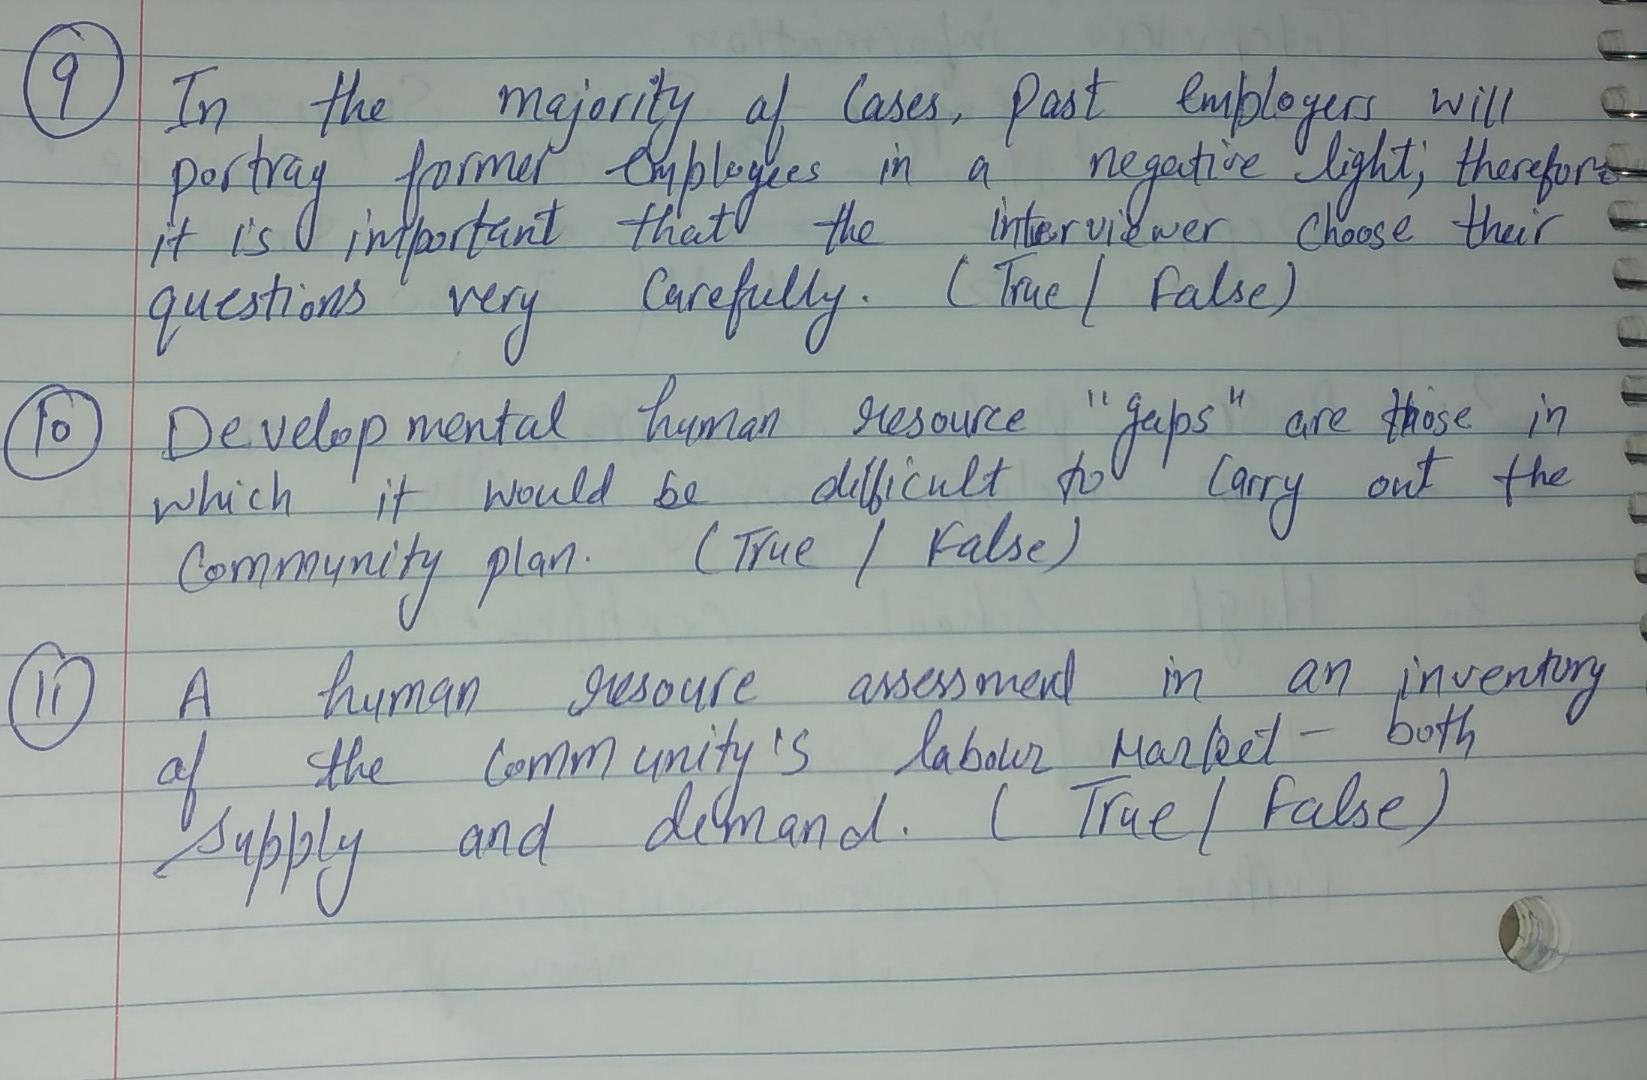 9 In the majority of Cases, past employers will
portray former employees in a negative light; therefore
it is important that the interviewer choose their
questions very Carefully. (True / False)
10 Developmental human resource "gaps" are those in
which it would be difficult to Carry out the
Community plan. (True / False)
11 A human resoure assessment in an inventory
of the Community's labour Market - both
Supply and demand. ( True / False)